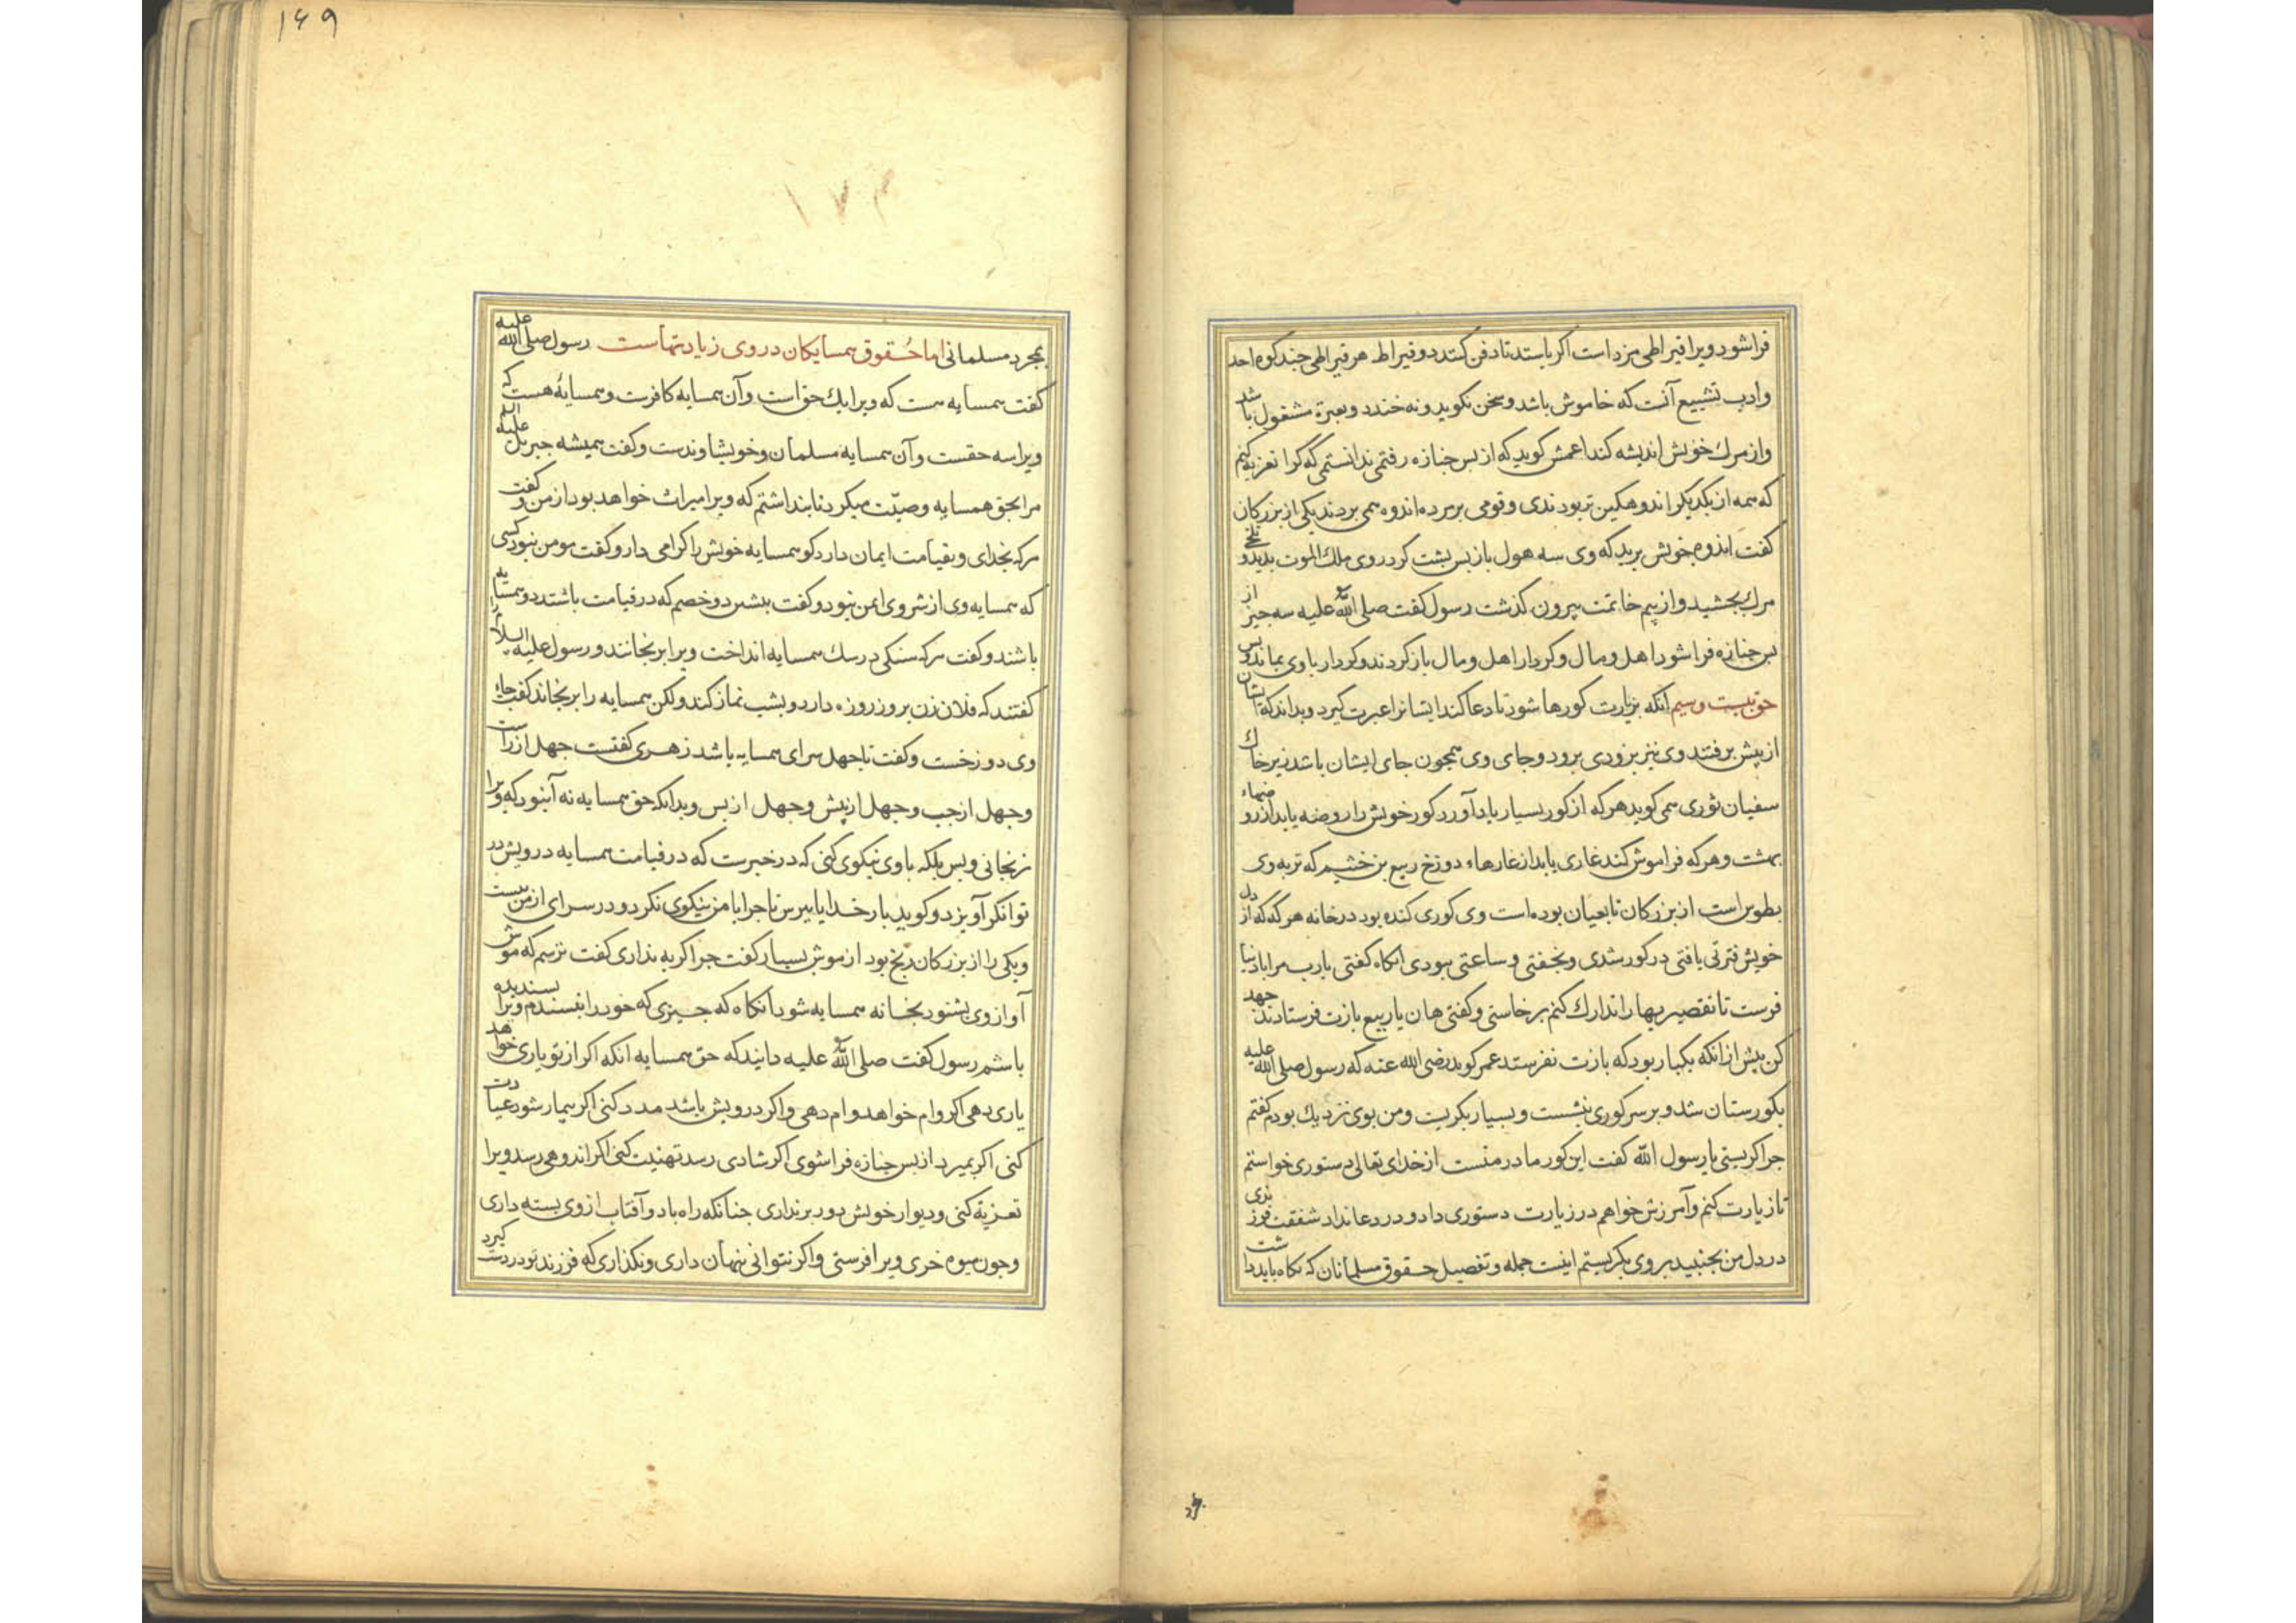 فرا شود ویرا قیراطی مزد است اکر بایستد تا دفن کنند دو قیراط هر قیراطی چند کوه احد
وادب تشییع آنست که خاموش باشد و سخن نکوید و نه خندد و بعبرة مشغول باشد
واز مرك خویش اندیشه کند اعمش کوید که از بس جنازه رفتمی ندانستمی که کرا تعزیه کنم
که همه از یکدیکر اندوهکین تر بودندی و قومی بر مرده اندوه می بردند یکی از بزرکان
کفت اندوه خویش برید که وی سه هول باز بس بشت کرد روی ملك الموت بدید و تلخی
مرك بچشید و از بیم خاتمت بیرون کذشت رسول کفت صلی الله علیه سه چیز از
بس جنازه فرا شود اهل و مال و کردار اهل و مال باز کردند و کردار با وی بماند و بس
حق بیست و سیم آنکه بزیارت کورها شود تا دعا کند ایشانرا و عبرت کیرد و بداند که ایشان
از پیش برفتند وی نیز بزودی برود و جای وی همچون جای ایشان باشد زیر خاك
سفیان ثوری می کوید هر که از کور بسیار یاد آورد کور خویش را روضه یابد از روضهاء
بهشت و هر که فراموش کند غاری یابد از غارهاء دوزخ ربیع بن خثیم که تربه وی
بطوس است از بزرکان تابعیان بوده است وی کوری کنده بود در خانه هر که که از دل
خویش فترتی یافتی در کور شدی و بخفتی و ساعتی ببودی آنکاه کفتی یا رب مرا باد نیا
فرست تا تقصیریها را تدارك کنم برخاستی و کفتی هان یا ربیع بازت فرستادند جهد
کن بیش از آنکه یکبار بود که بازت نفرستد عمر کوید رضی الله عنه که رسول صلی الله علیه
بکورستان شد و بر سر کوری بنشست و بسیار بکریست و من بوی نزدیك بودم کفتم
چرا کریستی یا رسول الله کفت این کور مادر منست از خدای تعالی دستوری خواستم
تا زیارت کنم و آمرزش خواهم در زیارت دستوری داد و در دعا نداد شفقت فرزندی
در دل من بجنبید بر وی بکریستم اینست جمله و تفصیل حقوق مسلمانان که نکاه باید داشت
۱۶۹
۱۷۳
بمجرد مسلمانی اما حُقوق همسایکان در وی زیادتهاست رسول صلی الله علیه
کفت همسایه هست که ویرا یك حق است و آن همسایه کافرست و همسایهٔ هست که
ویرا سه حقست و آن همسایه مسلمان و خویشاوندست و کفت همیشه جبریل علیه
مرا بحق همسایه وصیّت میکرد تا بنداشتم که ویرا میراث خواهد بود از من و کفت
هرکه بخدای و بقیامت ایمان دارد کو همسایه خویش را کرامی دار و کفت مومن نبود کسی
که همسایه وی از شر وی ایمن نبود و کفت بیشین دو خصم که در قیامت باشند دو همسایه
باشند و کفت هرکه سنکی در سك همسایه انداخت ویرا برنجانند و رسول علیه السلام را
کفتند که فلان زن بروز روزه دارد و بشب نماز کند ولکن همسایه را برنجاند کفت جاء
وی دوزخست و کفت تا جهل سرای همسایه باشد زهری کفتست جهل از راست
و جهل از جب و جهل از پیش و جهل از بس و بدانکه حق همسایه نه آن بود که ویرا
نرنجانی و بس بلکه با وی نیکوی کنی که در خبرست که در قیامت همسایه درویش در
توانکر آویزد و کوید بار خدایا ببرس تا چرا با من نیکوی نکرد و در سرای از من ببست
و یکی را از بزرکان رنج بود از موش بسیار کفت چرا کربه نداری کفت ترسم که موش
آواز وی بشنود بخانه همسایه شود آنکاه که جیزی که خود را نبسندم ویرا بسندیده
باشم رسول کفت صلی الله علیه دانید که حق همسایه آنکه اکر از تو یاری خواهد
یاری دهی اکر وام خواهد وام دهی و اکر درویش باشد مدد کنی اکر بیمار شود عیادت
کنی اکر بمیرد از بس جنازه فرا شوی اکر شادی رسد تهنیت کنی اکر اندوهی رسد ویرا
تعزیة کنی و دیوار خویش دور برنداری جنانکه راه باد و آفتاب از وی بسته داری
و جون میوه خری ویرا فرستی و اکر نتوانی بنهان داری و نکذاری که فرزند تو در دست کیرد